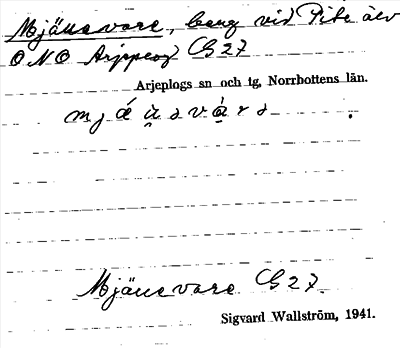 Mjäuevare, berg vid Pite älv
ONO Arjeplog G27
Arjeplogs sn och tg, Norrbottens län.
Mjäuevare G27.
Sigvard Wallström, 1941.